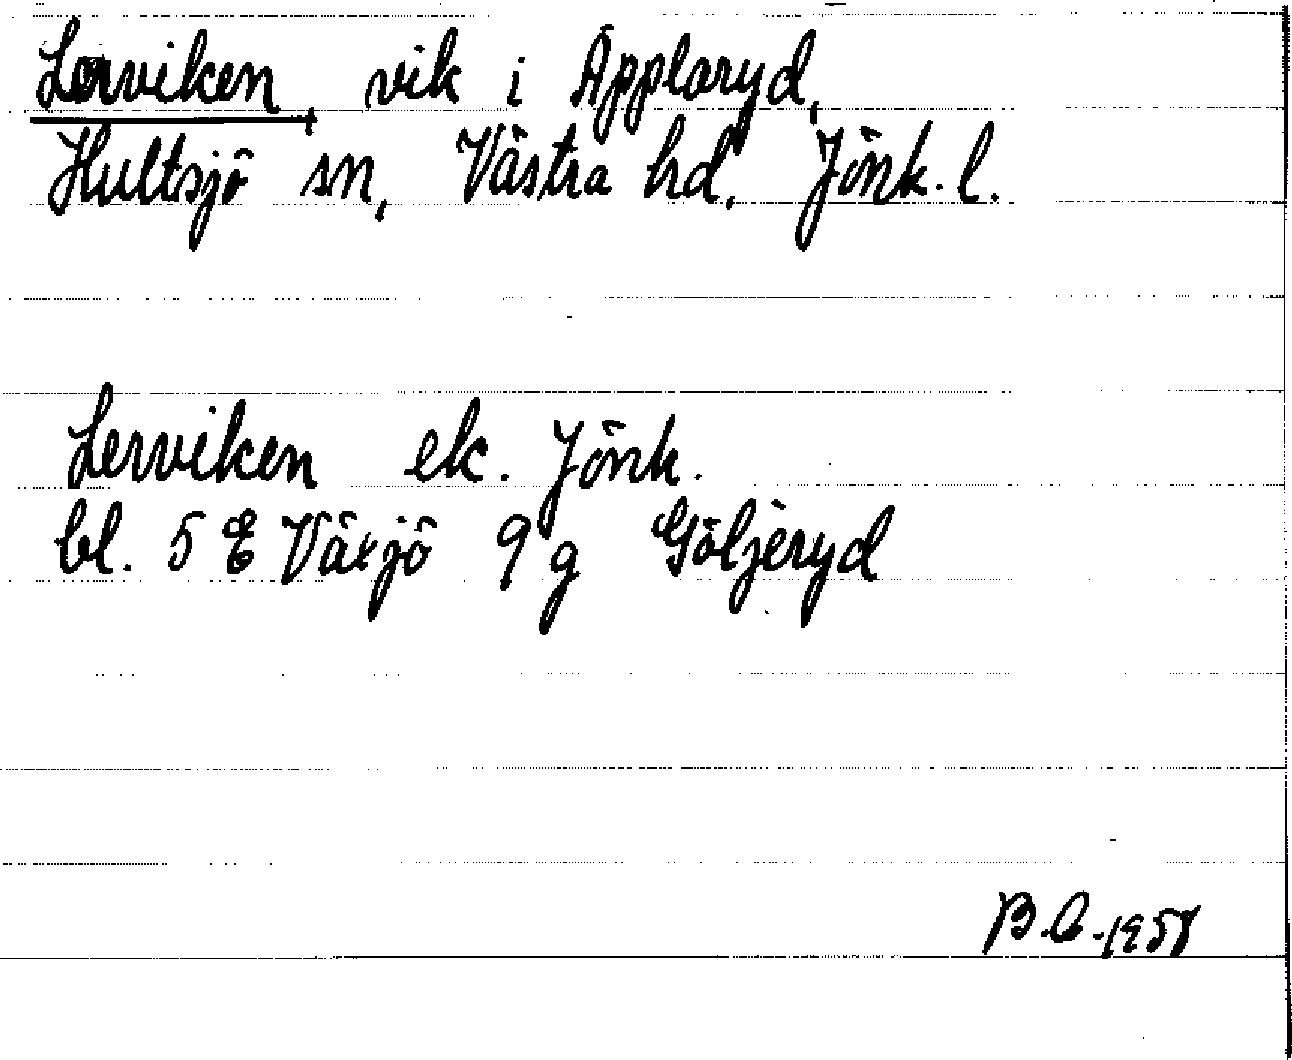 Lerviken, vik i Applaryd,
Hultsjö sn, Västra hd, Jönk. l.
Lerviken ek. Jönk.
bl. 5 E Växjö 9 g Göljeryd
B.C. 1958